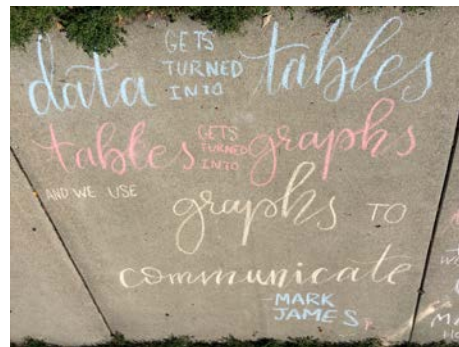 data GETS TURNED INTO tables
tables GETS TURNED INTO graphs
AND WE USE
graphs TO
communicate
-MARK
JAMES